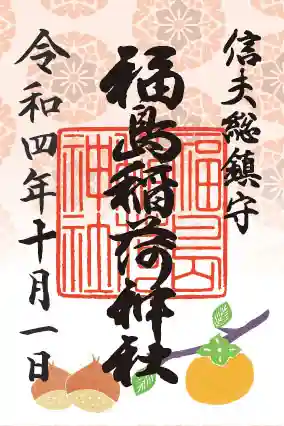 信夫総鎮守
福島稲荷神社
令和四年十月一日
福島稲荷神社